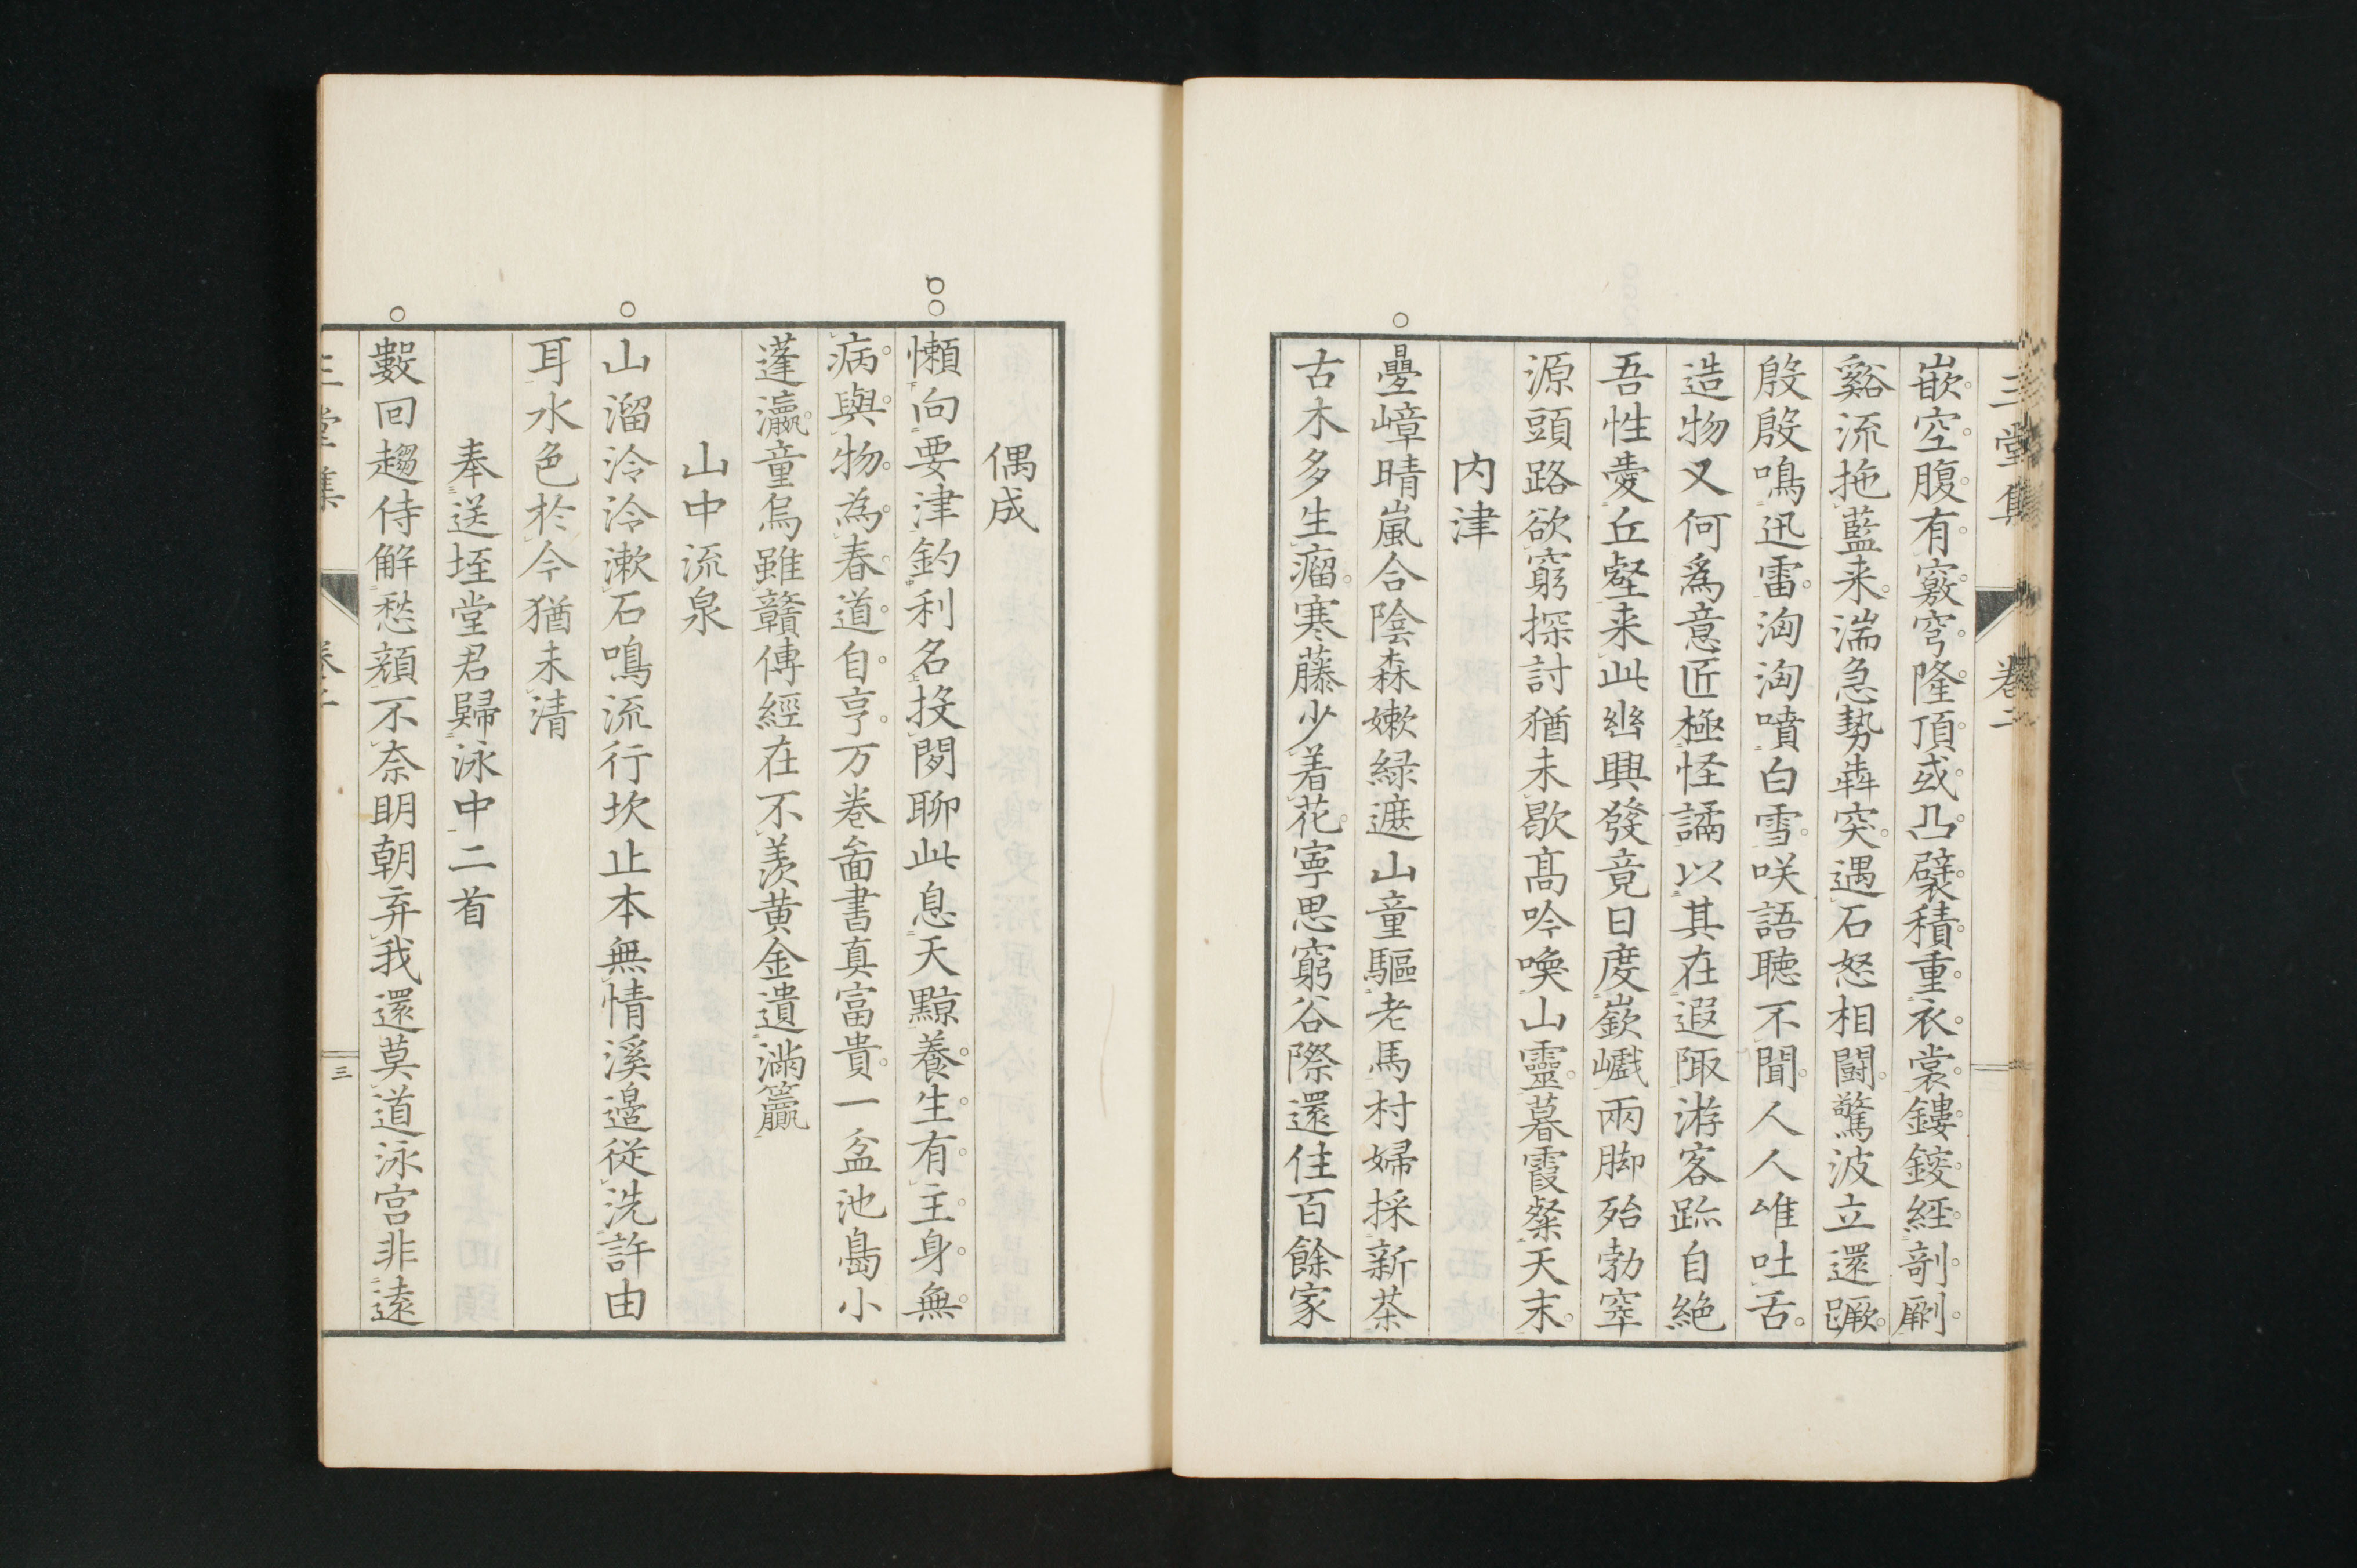 三堂集 卷二
嵌空腹有竅穹隆頂或凸襞積重衣裳鏤錽經剞劂
谿流拖藍来湍急勢犇突遇石怒相鬪驚波立還蹶
殷殷鳴迅雷洶洶噴白雪咲語聴不聞人人唯吐舌
造物又何爲意匠極怪譎以其在遐陬游客跡自絶
吾性愛丘壑来此幽興發竟日度嶔巇兩脚殆勃窣
源頭路欲窮探討猶未歇髙吟喚山靈暮霞粲天末
内津
疊嶂晴嵐合陰森嫩緑遮山童驅老馬村婦採新茶
古木多生瘤寒藤少着花寧思窮谷際還住百餘家
偶成
懶向要津釣利名投閒聊此息天黥養生有主身無
病與物為春道自亨万巻畜書真富貴一盆池島小
蓬瀛童烏雖贛傳經在不羡黄金遺滿籯
山中流泉
山溜泠泠漱石鳴流行坎止本無情溪邉従洗許由
耳水色於今猶未清
奉送垤堂君歸泳中二首
數回趨侍解愁顔不奈明朝弃我還莫道泳宫非遠
三堂集 卷二 三